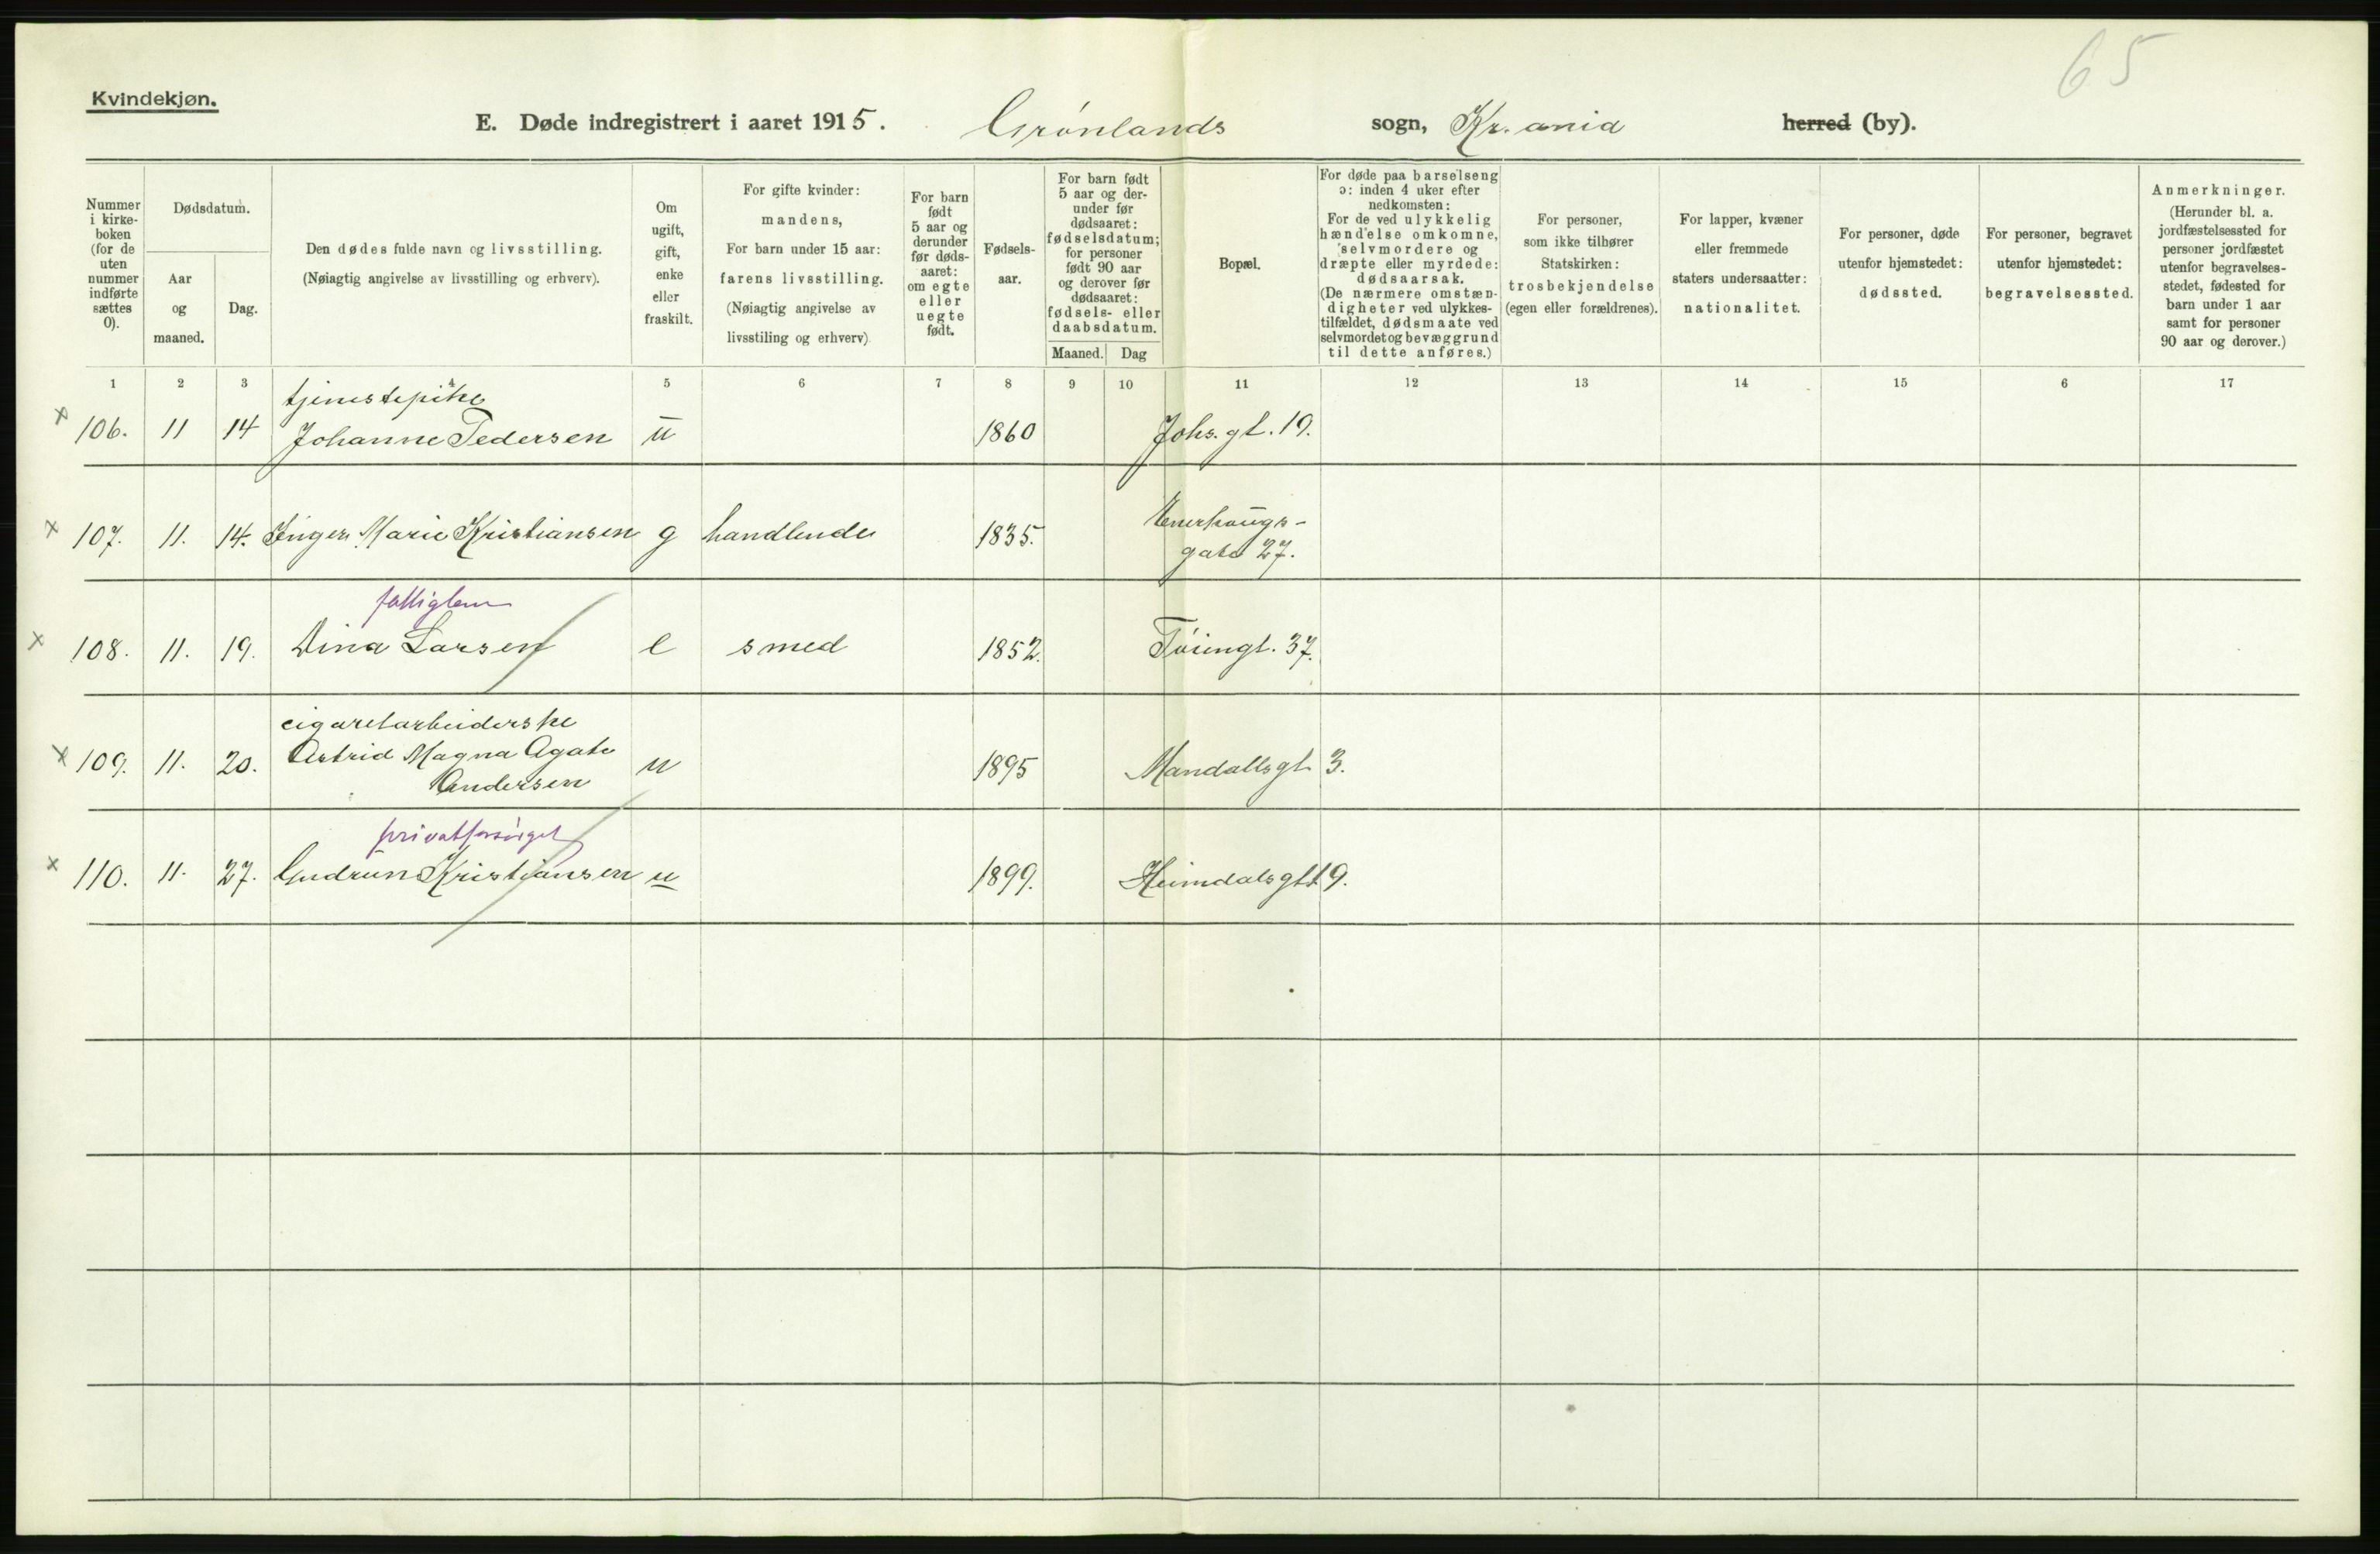 65
Kvindekjøn.
E. Døde indregistrert i aaret 1915. Grønlands sogn, Kr.ania herred (by).
Nummer i kirke-boken (for de uten nummer indførte sættes 0).
Dødsdatum.
Aar og maaned.
Dag.
Den dødes fulde navn og livsstilling.
(Nøiagtig angivelse av livsstilling og erhverv).
Om ugift, gift, enke eller fraskilt.
For gifte kvinder: mandens, For barn under 15 aar: farens livsstilling.
(Nøiagtig angivelse av livsstiling og erhverv)
For barn født 5 aar og derunder før døds-aaret: om egte eller uegte født.
Fødsels-aar.
For barn født 5 aar og der-under før dødsaaret: fødselsdatum; for personer født 90 aar og derover før dødsaaret: fødsels- eller daabsdatum.
Maaned. Dag
Bopæl.
For døde paa barselseng ɔ: inden 4 uker efter nedkomsten: For de ved ulykkelig hændelse omkomne, selvmordere og dræpte eller myrdede: dødsaarsak. (De nærmere omstæn-digheter ved ulykkes-tilfældet, dødsmaate ved selvmordet og bevæggrund til dette anføres.)
For personer, som ikke tilhører Statskirken: trosbekjendelse (egen eller forældrenes).
For lapper, kvæner eller fremmede staters undersaatter: nationalitet.
For personer, døde utenfor hjemstedet: dødssted.
For personer, begravet utenfor hjemstedet: begravelsessted.
Anmerkninger. (Herunder bl. a. jordfæstelsessted for personer jordfæstet utenfor begravelses-stedet, fødested for barn under 1 aar samt for personer 90 aar og derover.)
1 2 3 4 5 6 7 8 9 10 11 12 13 14 15 6 17
tjenestepike
x 106. 11 14 Johanne Pedersen u 1860 Johs. gt. 19.
x 107. 11. 14. Inger Marie Kristiansen g handlende 1835. Enerhaugs-
gate 27.
fattiglem
x 108. 11. 19. Dina Larsen e smed 1852. Tøiengt. 37.
cigaretarbeiderske
x 109. 11. 20. Astrid Magna Agate u 1895 Mandallsgt 3.
Andersen
privatforsørget
x 110. 11. 27. Gudrun Kristiansen u 1899. Heimdalsgt 19.